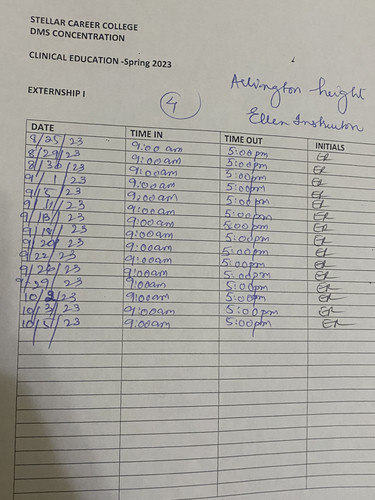 STELLAR CAREER COLLEGE
DMS CONCENTRATION
CLINICAL EDUCATION -Spring 2023
Arlington height
EXTERNSHIP I
4
Ellen Instructor
DATE TIME IN TIME OUT INITIALS
8/25/23 9:00 am 5:00pm ER
8/29/23 9:00am 5:00pm ER
8/30/23 9:00am 5:00pm ER
9/1/23 9:00am 5:00pm ER
9/5/23 9:00am 5:00pm ER
9/11/23 9:00am 5:00pm ER
9/13/23 9:00am 5:00pm ER
9/18/23 9:00am 5:00pm ER
9/20/23 9:00am 5:00pm ER
9/22/23 9:00am 5:00pm ER
9/26/23 9:00am 5:00pm ER
9/29/23 9:00am 5:00pm ER
10/2/23 9:00am 5:00pm ER
10/3/23 9:00am 5:00pm ER
10/5/23 9:00am 5:00pm ER